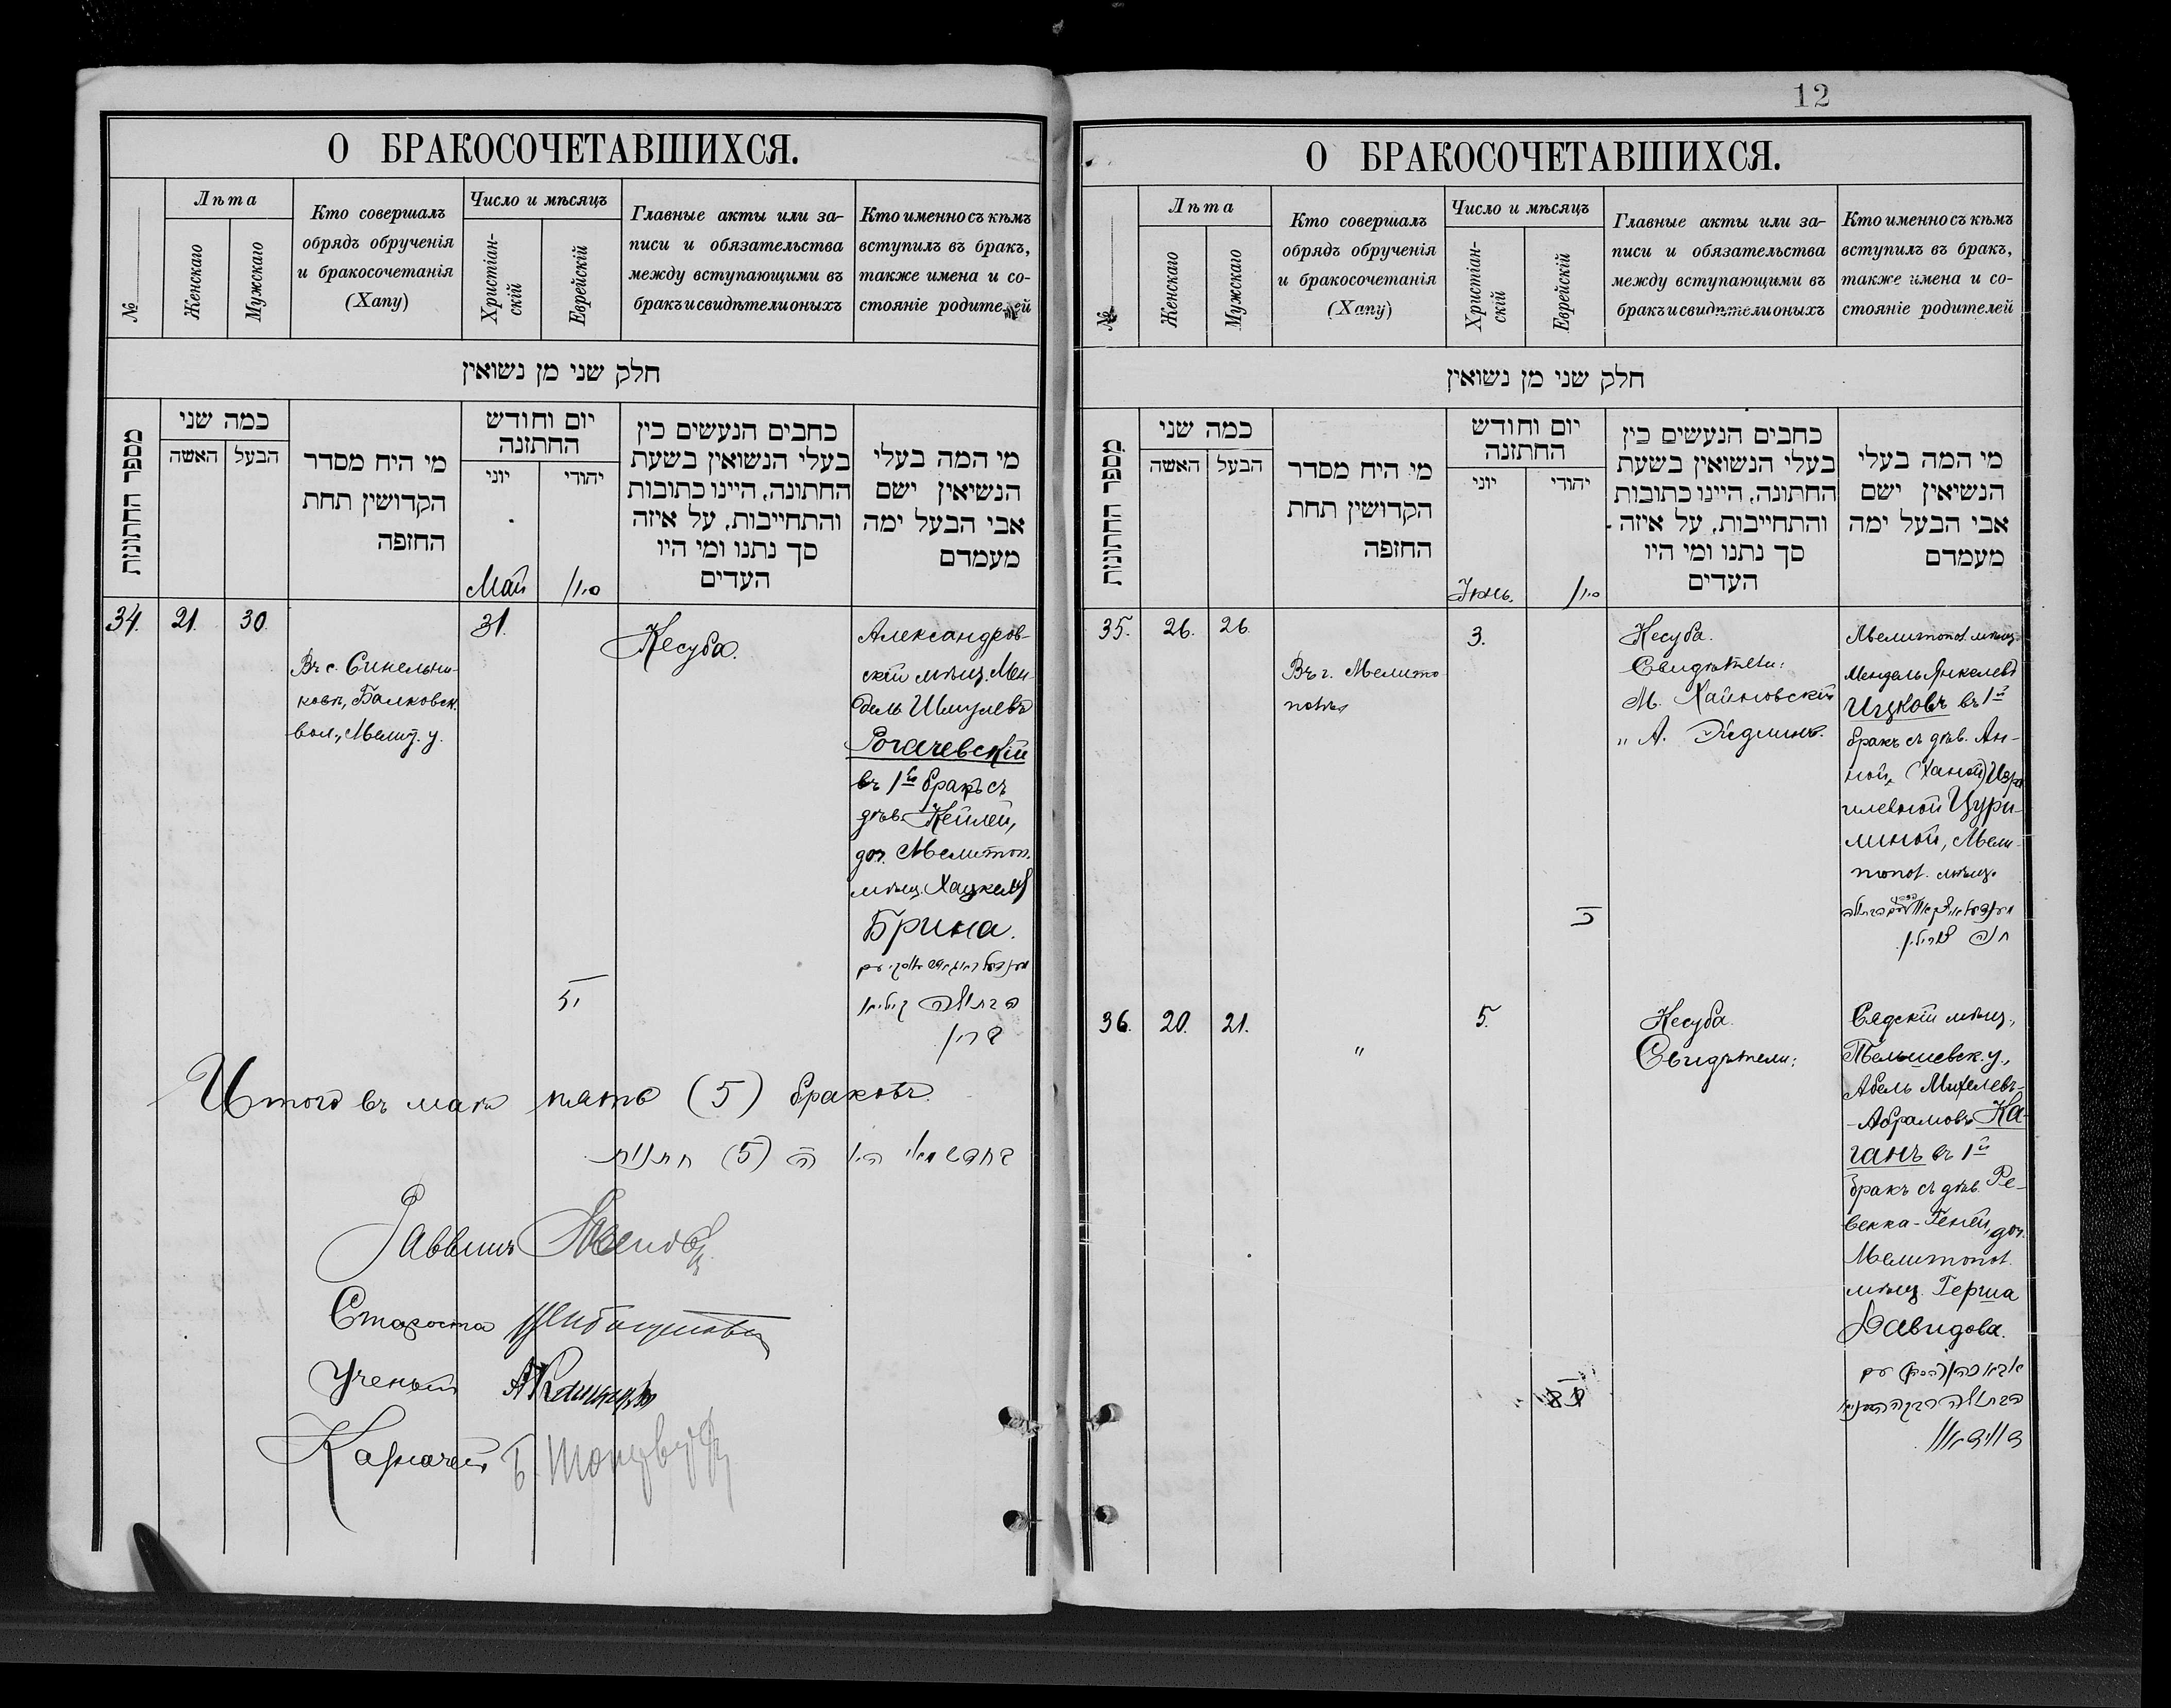 О БРАКОСОЧЕТАВШИХСЯ.
№
Лѣта
Женскаго
Мужскаго
Кто совершалъ
обрядъ обрученія
и бракосочетанія
(Хапу)
Число и мѣсяцъ
Христіан-
скій
Еврейскій
Главные акты или за-
писи и обязательства
между вступающими въ
бракъ и свидѣтели оныхъ
Кто именно съ кѣмъ
вступилъ въ бракъ,
также имена и со-
стояніе родителей
חלק שני מן נשואין
מספר החתונות
כמה שני
האשה
הבעל
מי היח מסדר
הקדושין תחת
החזפה
יום וחודש
החתזנה
יוני
יהודי
Май
כחבים הנעשים כין
בעלי הנשואין בשעת
החתונה, היינו כתובות
והתחייבות, על איזה
סך נתנו ומי היו
העדים
מי המה בעלי
הנשיאין ישם
אבי הבעל ימה
מעמדם
34.
21.
30.
Въ с. Синельни-
ковѣ, Балковск.
вол., Мелит. у.
31.
Кесуба.
Александров-
скій мѣщ. Мен-
дель Шмулевъ
Рогачевскій
въ 1й бракъ съ
дѣв. Кейлей,
доч. Мелитоп.
мѣщ. Хацкеля
Брина.
Итого въ маѣ пять (5) браковъ.
(5)
Раввинъ
Староста
Ученый
Казначей
12
О БРАКОСОЧЕТАВШИХСЯ.
№
Лѣта
Женскаго
Мужскаго
Кто совершалъ
обрядъ обрученія
и бракосочетанія
(Хапу)
Число и мѣсяцъ
Христіан-
скій
Еврейскій
Главные акты или за-
писи и обязательства
между вступающими въ
бракъ и свидѣтели оныхъ
Кто именно съ кѣмъ
вступилъ въ бракъ,
также имена и со-
стояніе родителей
חלק שני מן נשואין
מספר החתונות
כמה שני
האשה
הבעל
מי היח מסדר
הקדושין תחת
החזפה
יום וחודש
החתזנה
יוני
יהודי
Іюнь.
כחבים הנעשים כין
בעלי הנשואין בשעת
החתונה, היינו כתובות
והתחייבות, על איזה
סך נתנו ומי היו
העדים
מי המה בעלי
הנשיאין ישם
אבי הבעל ימה
מעמדם
35.
26.
26.
Въ г. Мелито
полѣ
3.
Кесуба.
Свидѣтели:
М. Хайновскій
" А.
Мелитопол. мѣщ.
Мендель Янкелевъ
Ицковъ въ 1й
бракъ съ дѣв. Ан-
ной, (Ханой) Изра
илевной Цури-
линой, Мели-
топол. мѣщ.
36.
20.
21.
"
5.
Кесуба.
Свидѣтели:
Сядскій мѣщ.,
Тельшевск. у.,
Абель Михелевъ-
-Абрамовъ Ка-
ганъ въ 1й
бракъ съ дѣв. Ре-
векка-Геней, доч.
Мелитопол.
мѣщ. Герша
Давидова.